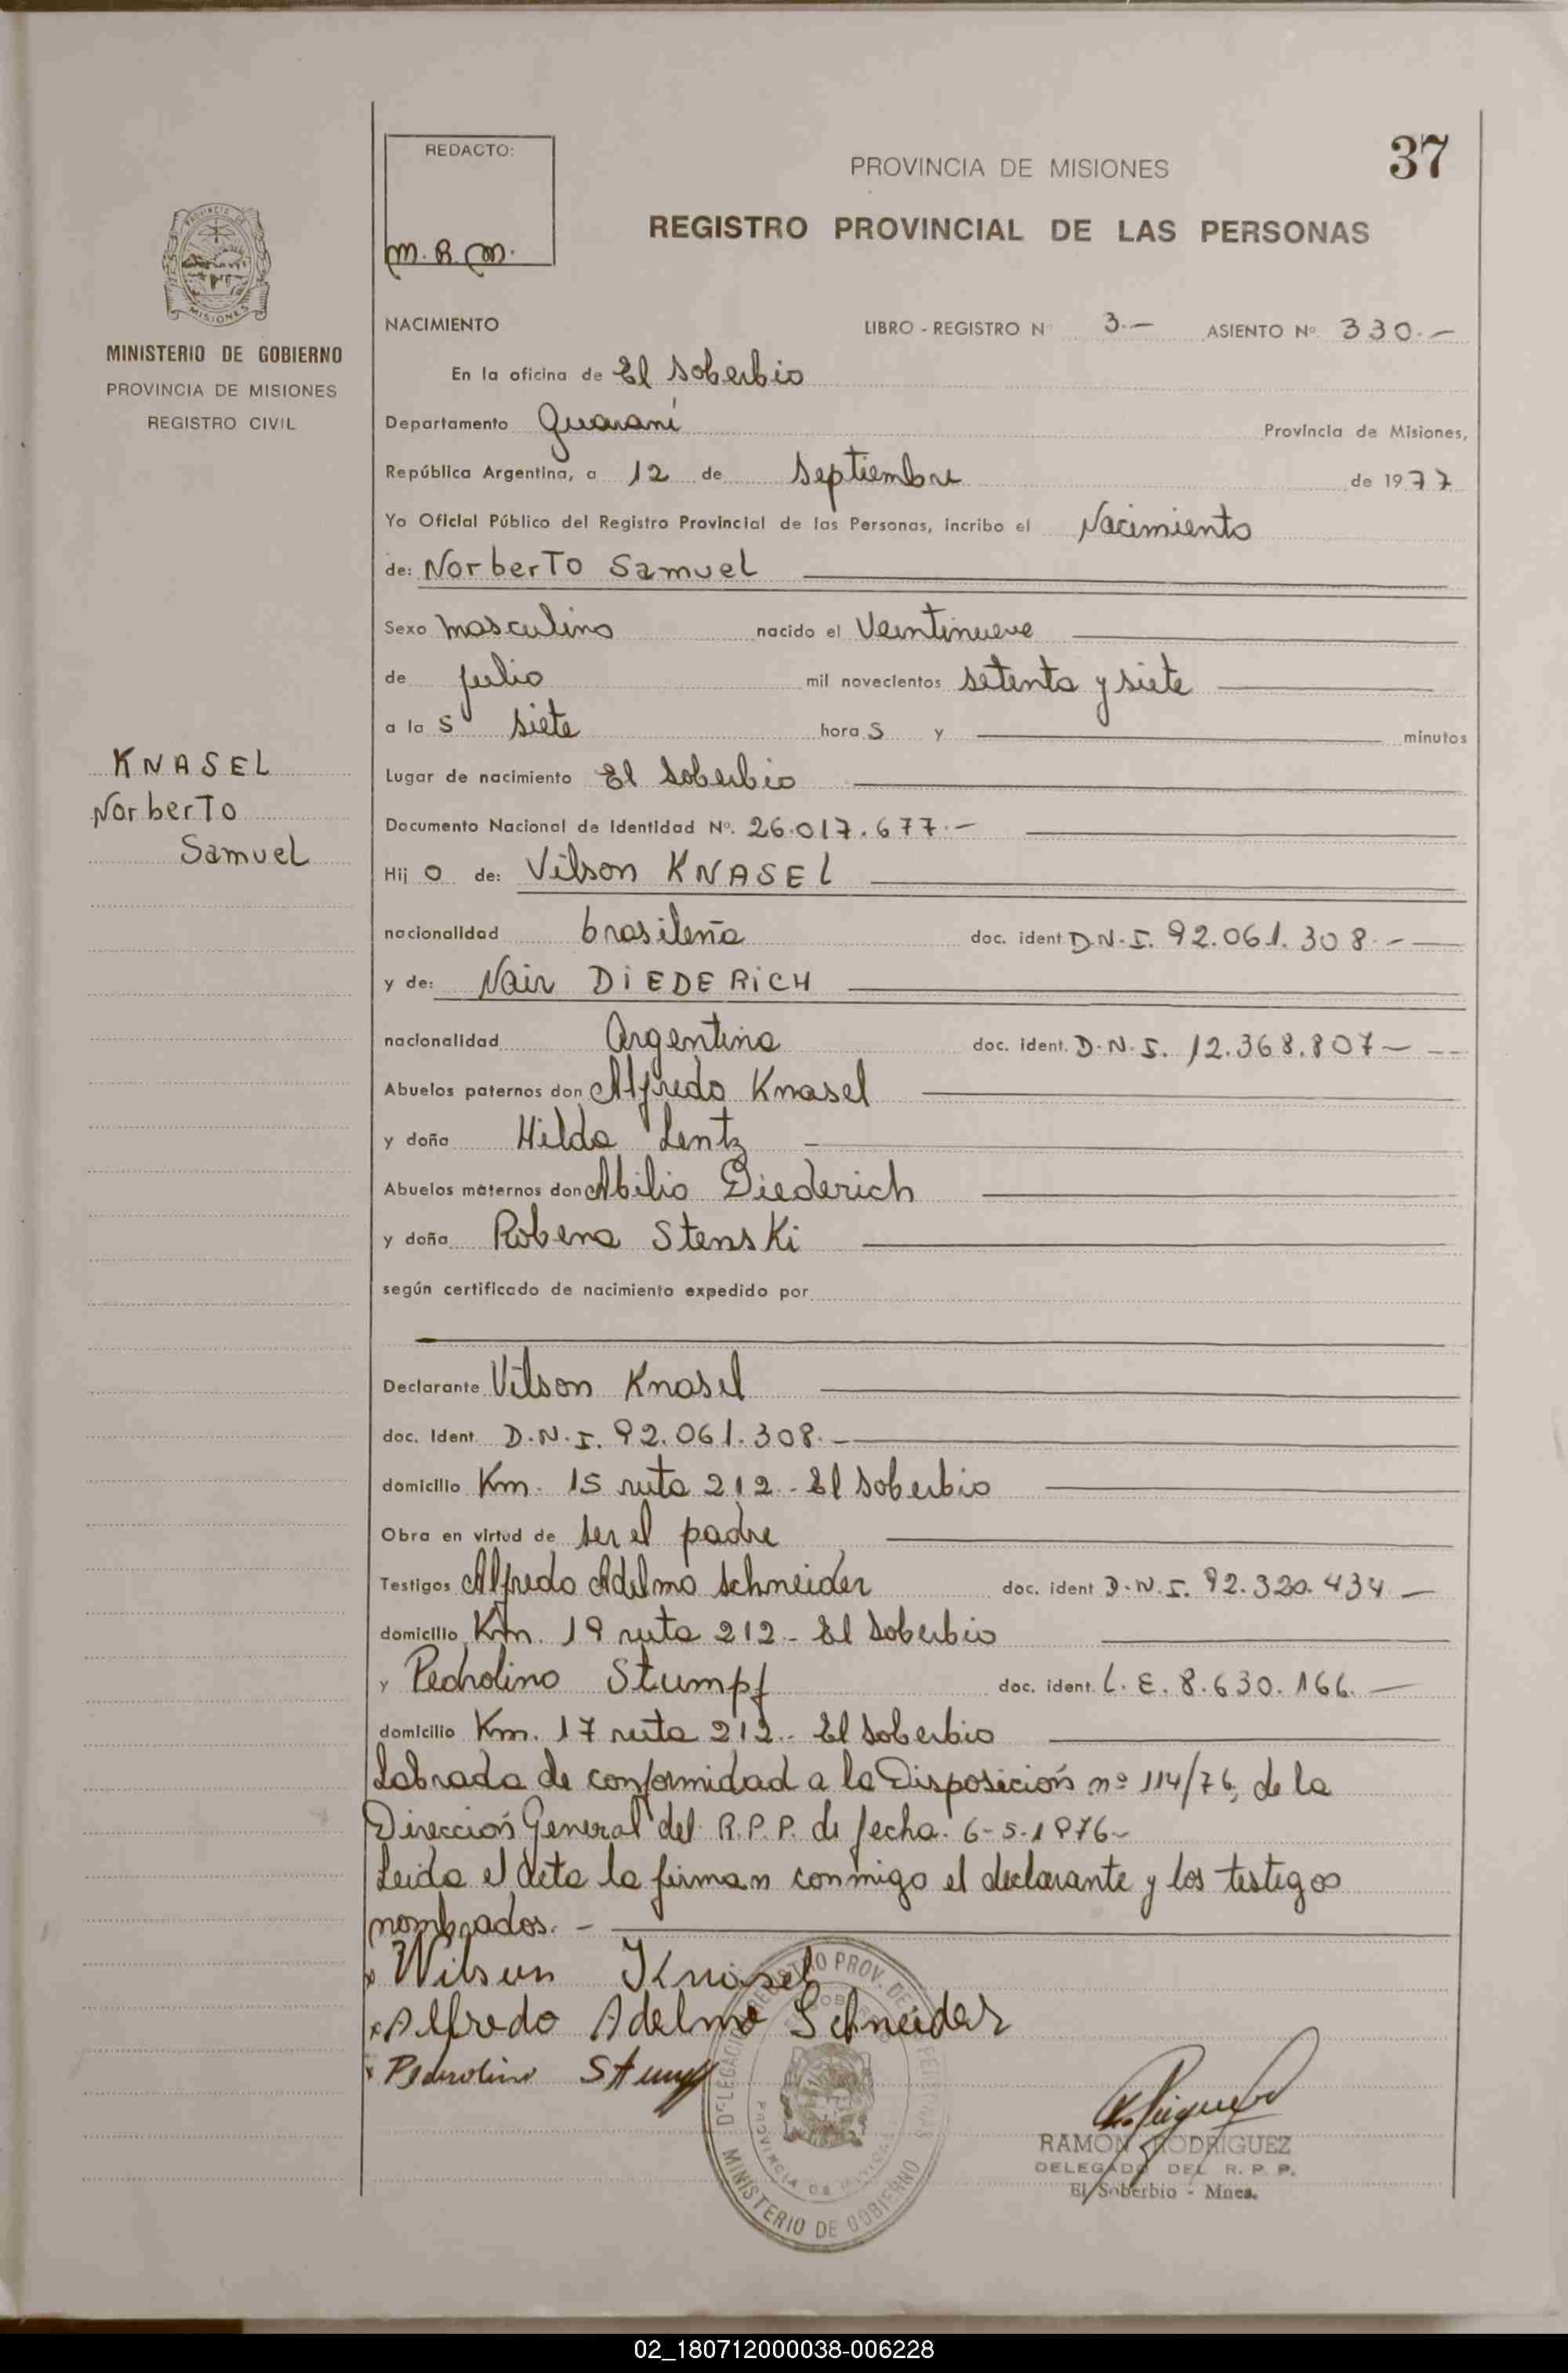 37
REDACTO:
M.R.M.
PROVINCIA DE MISIONES
REGISTRO PROVINCIAL DE LAS PERSONAS
PROVINCIA DE
MISIONES
MINISTERIO DE GOBIERNO
PROVINCIA DE MISIONES
REGISTRO CIVIL
KNASEL
Norberto
Samuel
NACIMIENTO LIBRO - REGISTRO Nº 3.— ASIENTO Nº. 330.—
En la oficina de El Soberbio
Departamento Guaraní Provincia de Misiones,
República Argentina, a 12 de Septiembre de 1977
Yo Oficial Público del Registro Provincial de las Personas, incribo el Nacimiento
de: Norberto Samuel
Sexo masculino nacido el Veintinueve
de julio mil novecientos setenta y siete
a la s siete hora s y minutos
Lugar de nacimiento El Soberbio
Documento Nacional de Identidad Nº. 26.017.677.—
Hij o de: Vilson KNASEL
nacionalidad brasileña doc. ident D.N.I. 92.061.308.—
y de: Nair DIEDERICH
nacionalidad Argentina doc. ident. D.N.I. 12.368.807—
Abuelos paternos don Alfredo Knasel
y doña Hilda Lentz
Abuelos maternos don Abilio Diederich
y doña Robena Stenski
según certificado de nacimiento expedido por
Declarante Vilson Knasel
doc. Ident. D.N.I. 92.061.308.—
domicilio Km. 15 ruta 212 - El Soberbio
Obra en virtud de ser el padre
Testigos Alfredo Adelmo Schneider doc. ident D.N.I. 92.320.434—
domicilio Km. 19 ruta 212 - El Soberbio
y Pedrolino Stumpf doc. ident. L.E. 8.630.166.—
domicilio Km. 17 ruta 212 - El Soberbio
Labrada de conformidad a la Disposición nº 114/76, de la
Dirección General del R.P.P. de fecha 6-5-1976-
Leida el acta la firman conmigo el declarante y los testigos
nombrados.—
x Wilson Knasel
x Alfredo Adelmo Schneider
x Pedrolino Stumpf
DELEGACION REGISTRO PROV. DE PERSONAS
EL SOBERBIO
PROVINCIA DE MISIONES
MINISTERIO DE GOBIERNO
RAMON RODRIGUEZ
DELEGADO DEL R. P. P.
El Soberbio - Mnes.
02_180712000038-006228